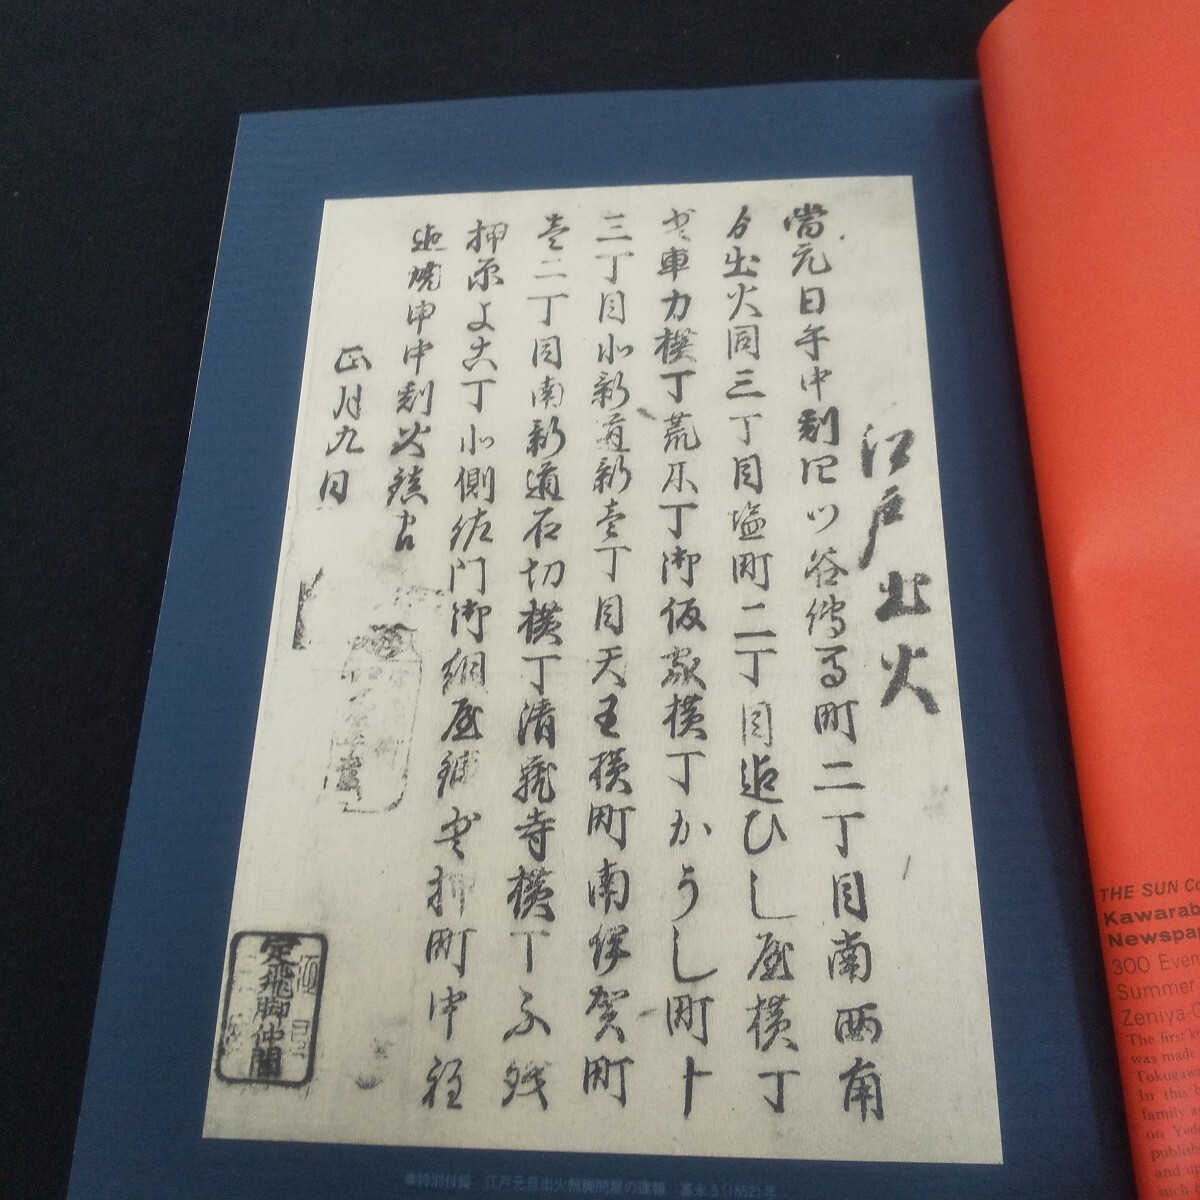 江戸出火
當元日午中刻四ツ谷傳馬町二丁目南西角
ゟ出火同三丁目塩町二丁目迠ひし屋横丁
車力横丁荒木丁御仮家横丁かうし町十
三丁目北新道新壱丁目天王横町南伊賀町
壱二丁目南新道石切横丁清巌寺横丁不残
押原よこ丁北側佐門御組屋鋪押町中程
迠焼申中刻火鎮申
正月九日
定飛脚仲間
●特別付録 江戸元旦出火飛脚問屋の速報 嘉永5(1852)年
THE SUN
Kawarab
Newspa
300 Even
Summer
Zeniya-G
The first k
was made
Tokugawa
In this
family a
on Yedo
publish
and up
such